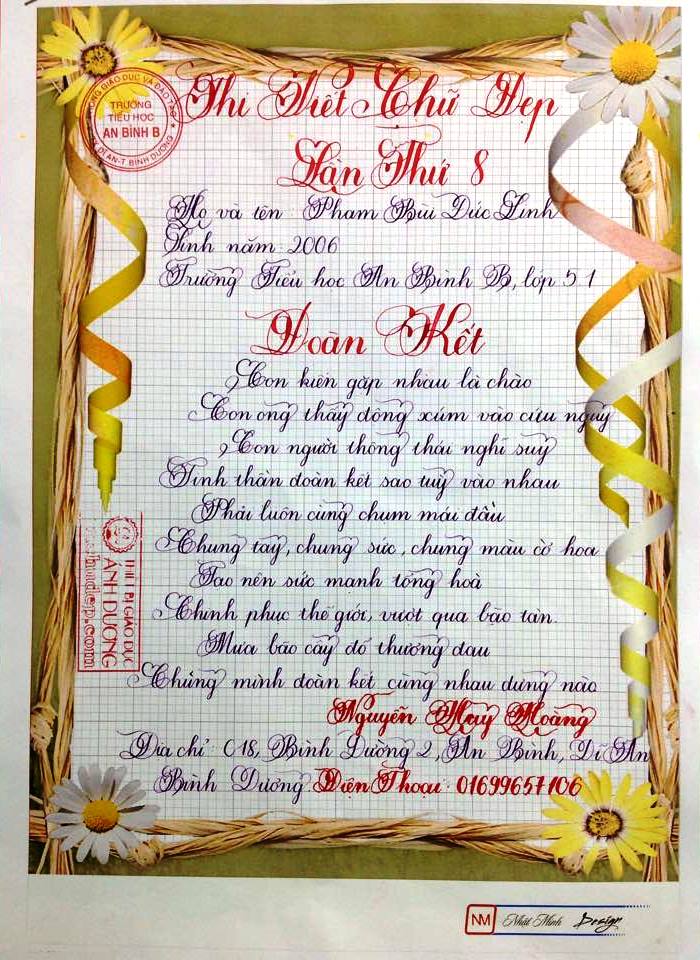 PHÒNG GIÁO DỤC VÀ ĐÀO TẠO
TRƯỜNG
TIỂU HỌC
AN BÌNH B
DĨ AN-T. BÌNH DƯƠNG
Thi Viết Chữ Đẹp
Lần Thứ 8
Họ và tên: Phạm Bùi Đức Linh
Sinh năm: 2006
Trường Tiểu học An Bình B, lớp 5 1
Đoàn Kết
Con kiến gặp nhau là chào
Con ong thấy động xúm vào cứu nguy
Con người thông thái nghĩ suy
Tinh thần đoàn kết sao tuỳ vào nhau
Phải luôn cùng chụm mái đầu
Chung tay, chung sức, chung màu cờ hoa
Tạo nên sức mạnh tổng hoà
Chinh phục thế giới, vượt qua bạo tàn.
Mưa bão cây đổ thương đau
Chúng mình đoàn kết cùng nhau dựng nào
Nguyễn Huy Hoàng
Địa chỉ: C18, Bình Đường 2, An Bình, Dĩ An
Bình Dương Điện Thoại: 01699657106
THIẾT BỊ GIÁO DỤC
ÁNH DƯƠNG
NM Nhật Minh Design